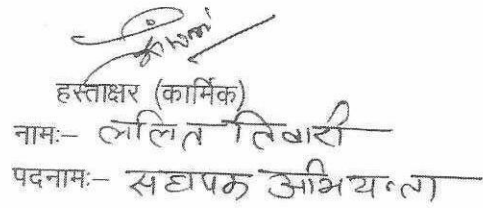 हस्ताक्षर (कार्मिक)
नामः- ललित तिवारी
पदनामः- सहायक अभियन्ता